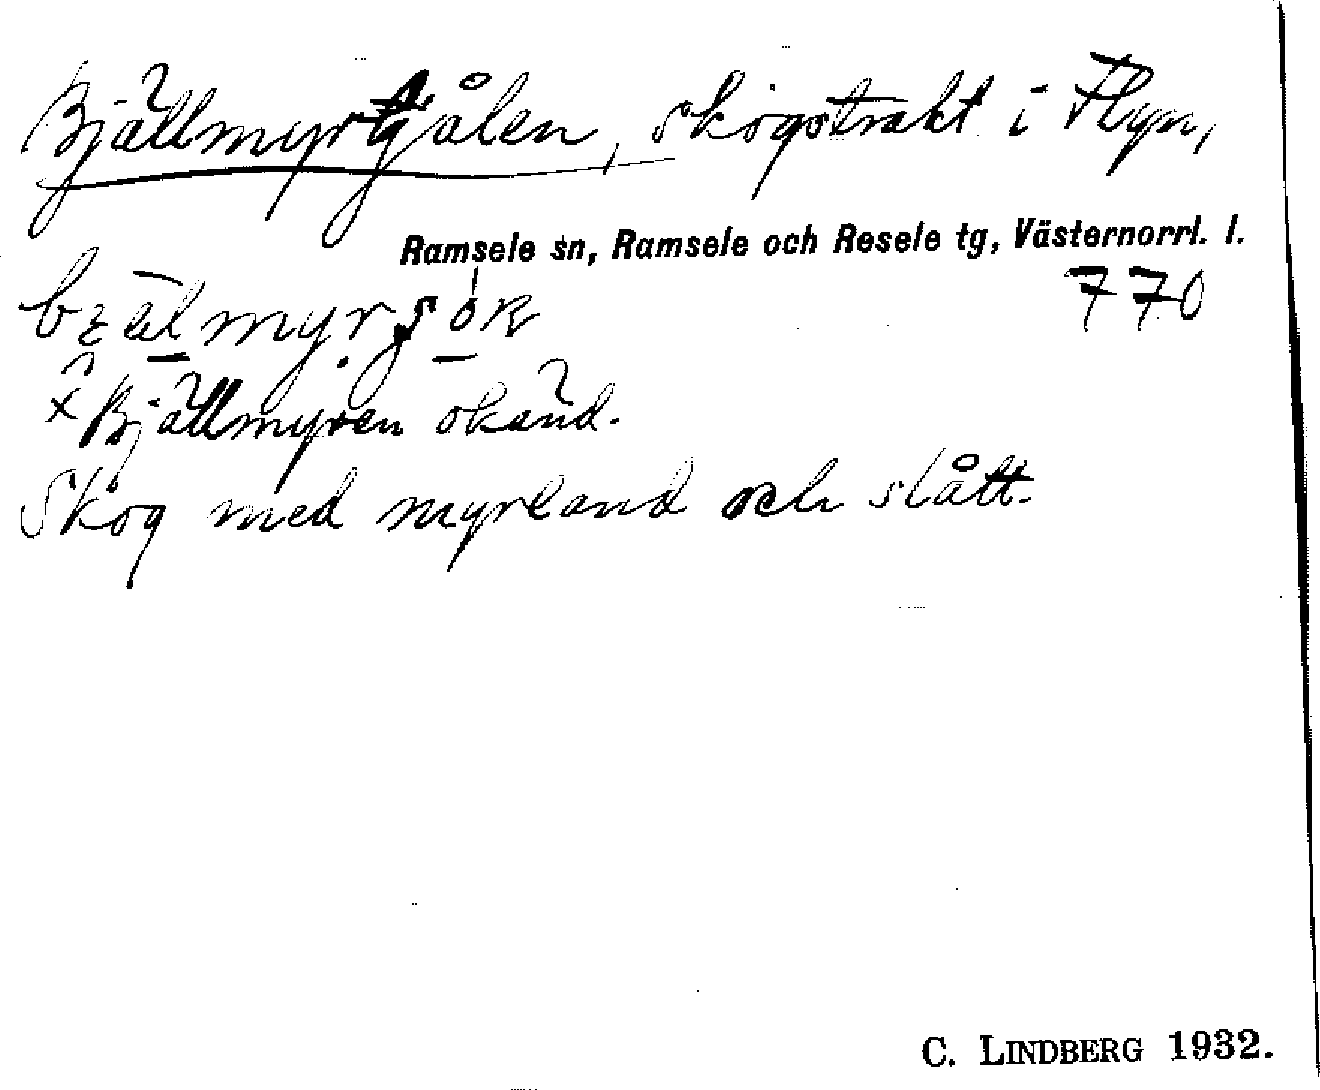 Bjällmyrtjålen, skogstrakt i Flyn,
Ramsele sn, Ramsele och Resele tg, Västernorrl. l.
770
x Bjällmyren okänd.
Skog med myrland och slått.
C. LINDBERG 1932.